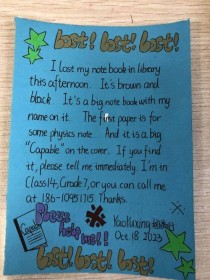 Lost! Lost! Lost!
I lost my note book in library
this afternoon. It's brown and
black. It's a big note book with my
name on it. The first paper is for
some physics note. And it is a big
"Capable" on the cover. If you find
it, please tell me immediately. I'm in
Class14, Grade7, or you can call me
at 186-10951115 Thanks.
Please
help me!!
Capable
Oct.18 2023
Lost! Lost! Lost!